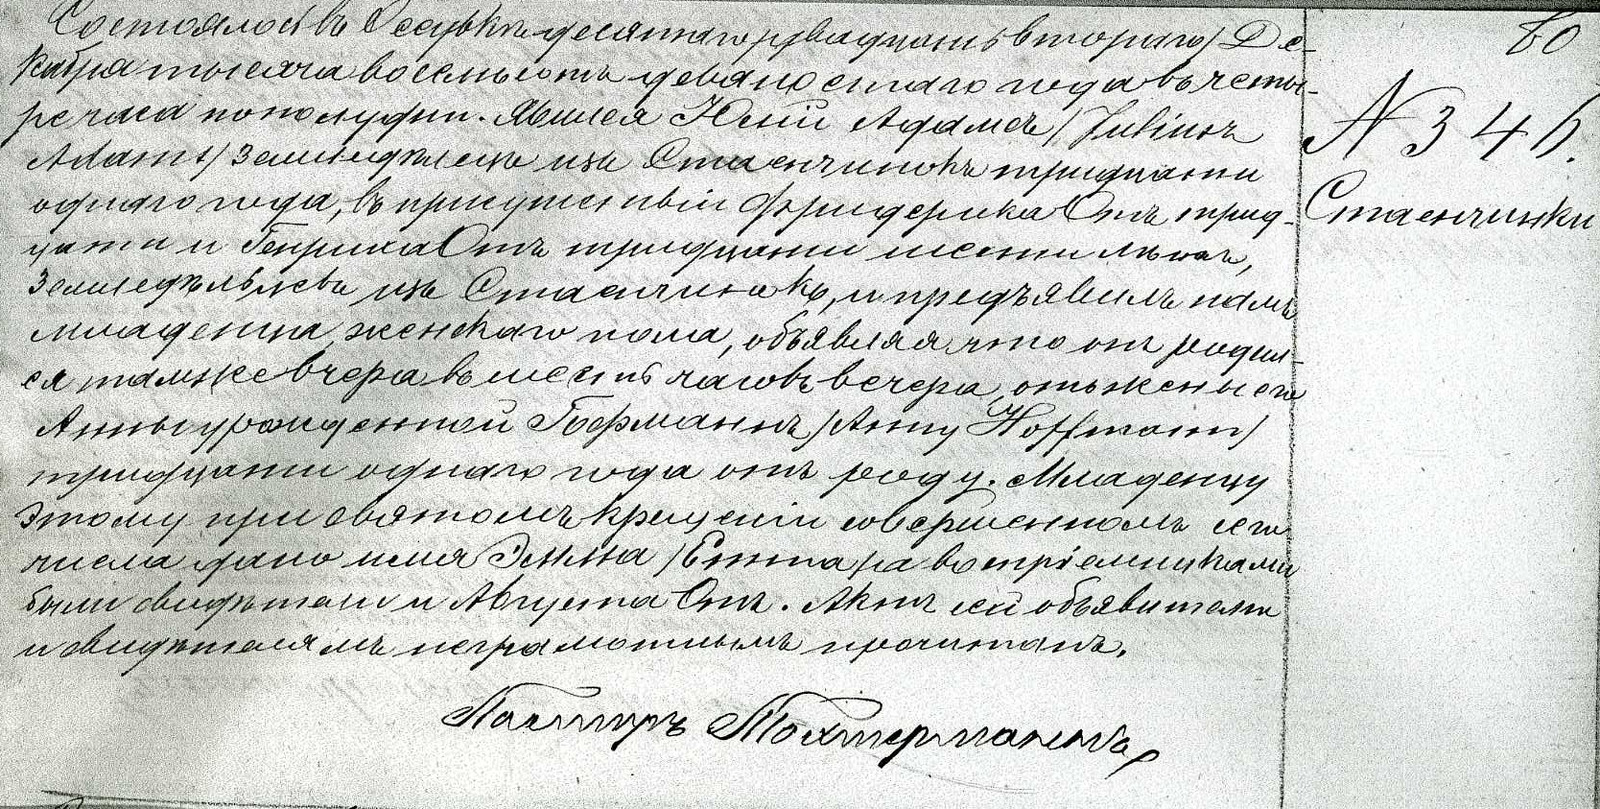 Состоялось въ Осувкѣ десятаго /двадцать втораго/ Де-
кабря тысяча восемьсотъ девяностаго года въ четы-
ре часа пополудни. Явился Юлій Адамсъ /Julius
Adams/ земледѣлецъ изъ Стаенчинокъ тридцати
одного года, въ присутствіи Фридерика Отъ трид-
цати и Генриха Отъ тридцати шести лѣтъ,
земледѣльцевъ изъ Стаенчинокъ, и предъявилъ намъ
младенца женскаго пола, объявляя что онъ родил-
ся тамже вчера въ шесть часовъ вечера, отъ жены его
Анны урожденной Гофманнъ /Anny Hoffmann/
тридцати одного года отъ роду. Младенцу
этому при святомъ крещеніи совершенномъ сего
числа дано имя Эмма /Emma/ а воспріемниками
были свидѣтели и Августа Отъ. Актъ сей объявителю
и свидѣтелямъ неграмотнымъ прочитанъ.
Пасторъ
80
N 346.
Стаенчинки